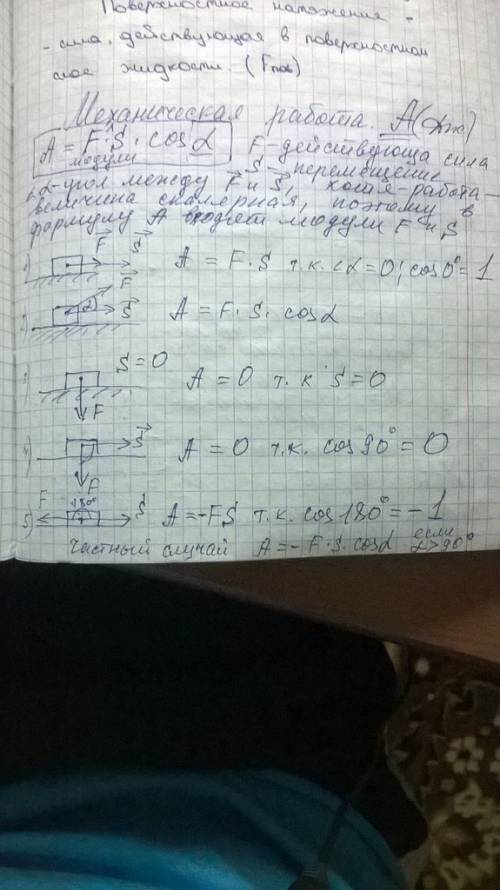 Поверхностное натяжение -
- сила, действующая в поверхностном
слое жидкости. (Fпов)
Механическая работа. A(Дж)
A = F·S·cosα F-действующа сила
модули S-перемещение
α-угол между F и S, хотя-работа-
величина скалярная, поэтому в
формулу A входят модули F и S
1) F S A = F·S т.к. <α=0; cos0°=1
2) α F S A = F·S·cosα
3) S=0 F A = 0 т.к S=0
4) S F A = 0 т.к. cos 90°=0
5) F 180° S A=-FS т.к. cos 180°=-1
Частный случай A=-F·S·cosα если α>90°